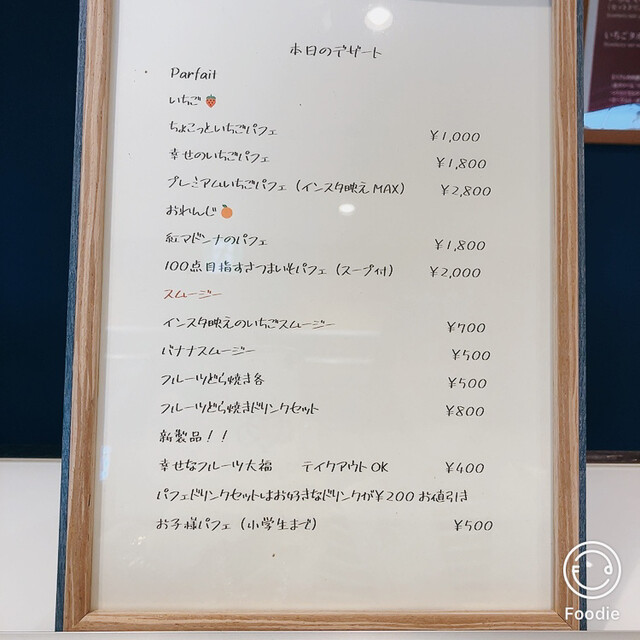 本日のデザート
Parfait
いちご🍓
ちょこっといちごパフェ ¥1,000
幸せのいちごパフェ ¥1,800
プレミアムいちごパフェ(インスタ映えMAX) ¥2,800
おれんじ🍊
紅マドンナのパフェ ¥1,800
100点目指すさつまいもパフェ(スープ付) ¥2,000
スムージー
インスタ映えのいちごスムージー ¥700
バナナスムージー ¥500
フルーツどら焼き各 ¥500
フルーツどら焼きドリンクセット ¥800
新製品!!
幸せなフルーツ大福 テイクアウトOK ¥400
パフェドリンクセットはお好きなドリンクが¥200お値引き
お子様パフェ(小学生まで) ¥500
Foodie